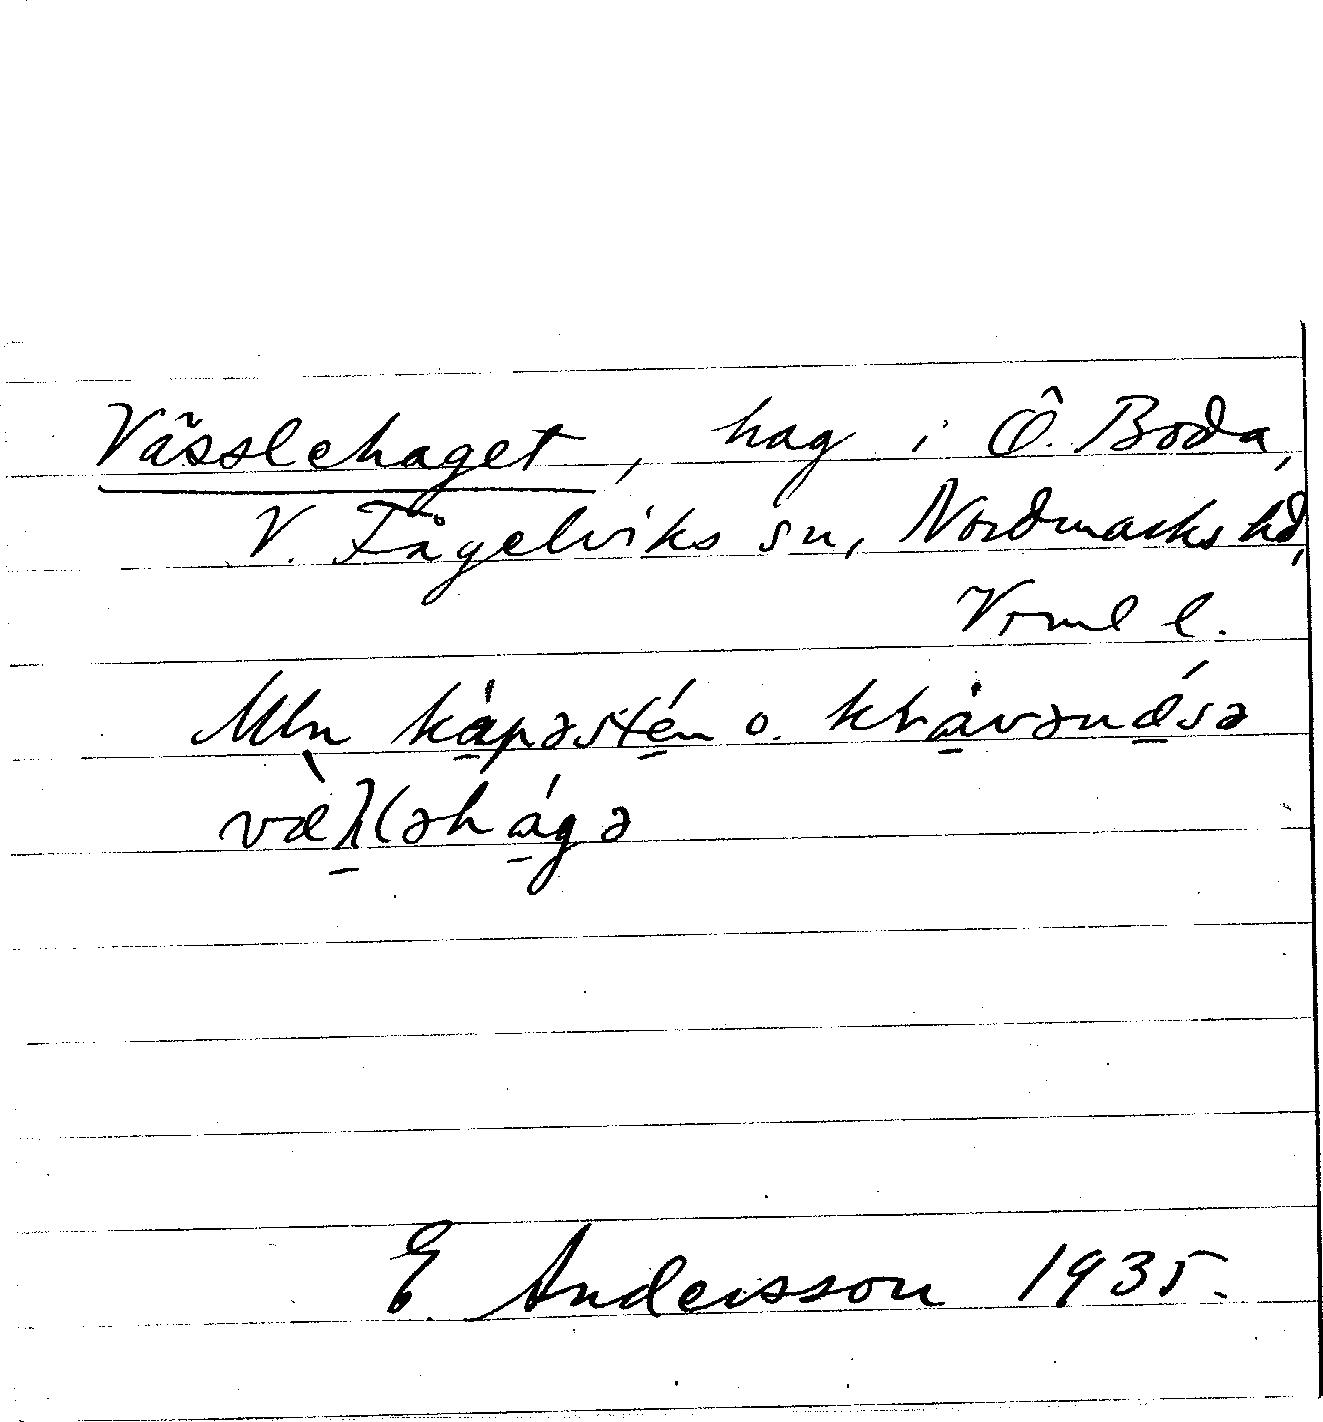 Vässlehaget, hag i Ö. Boda,
V. Fågelviks sn, Nordmarks hd,
Vrml l.
Mln kápəstén o. klåvənǽsə
væ̀λləhágə
E. Andersson 1935.